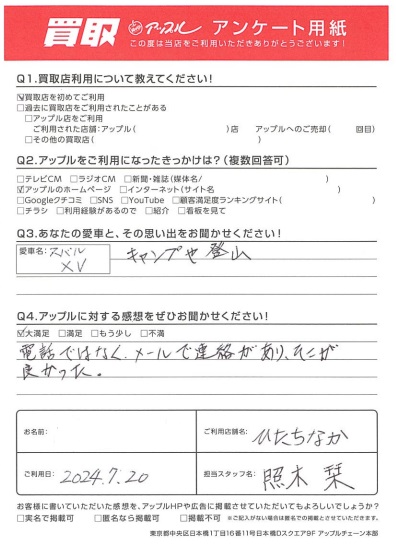 買取 アップル アンケート用紙
この度は当店をご利用いただきありがとうございます！
Q1.買取店利用について教えてください！
☑買取店を初めてご利用
□過去に買取店をご利用されたことがある
□アップル店をご利用
ご利用された店舗：アップル（ ）店 アップルへのご売却（ 回目）
□その他の買取店（ ）
Q2.アップルをご利用になったきっかけは？（複数回答可）
□テレビCM □ラジオCM □新聞・雑誌（媒体名/ ）
☑アップルのホームページ □インターネット（サイト名 ）
□Googleクチコミ □SNS □YouTube □顧客満足度ランキングサイト（ ）
□チラシ □利用経験があるので □紹介 □看板を見て
Q3.あなたの愛車と、その思い出をお聞かせください！
愛車名：スバル
XV
キャンプや登山
Q4.アップルに対する感想をぜひお聞かせください！
☑大満足 □満足 □もう少し □不満
電話ではなく、メールで連絡があり、そこが
良かった。
お名前：
ご利用店舗名：
ひたちなか
ご利用日：2024.7.20
担当スタッフ名：照木 栞
お客様に書いていただいた感想を、アップルHPや広告に掲載させていただいてもよろしいでしょうか？
□実名で掲載可 □匿名なら掲載可 □掲載不可 ※ご記入がない場合は匿名での掲載とさせていただきます。
東京都中央区日本橋1丁目16番11号日本橋Dスクエア9F アップルチェーン本部